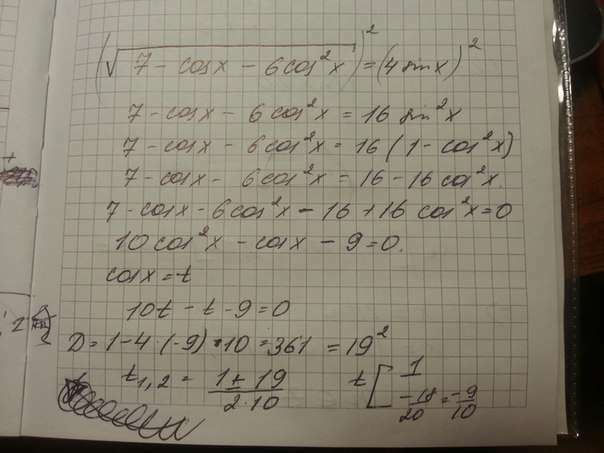 (√(7 - cos x - 6cos²x))² = (4 sin x)²
7 - cos x - 6cos²x = 16 sin²x
7 - cos x - 6cos²x = 16(1 - cos²x)
7 - cos x - 6cos²x = 16 - 16cos²x.
7 - cos x - 6cos²x - 16 + 16 cos²x = 0
10cos²x - cos x - 9 = 0.
cos x = t
10t - t - 9 = 0
D = 1 - 4·(-9)·10 = 361 = 19²
t₁,₂ = (1 ± 19)/(2·10) t [ 1
-18/20 = -9/10